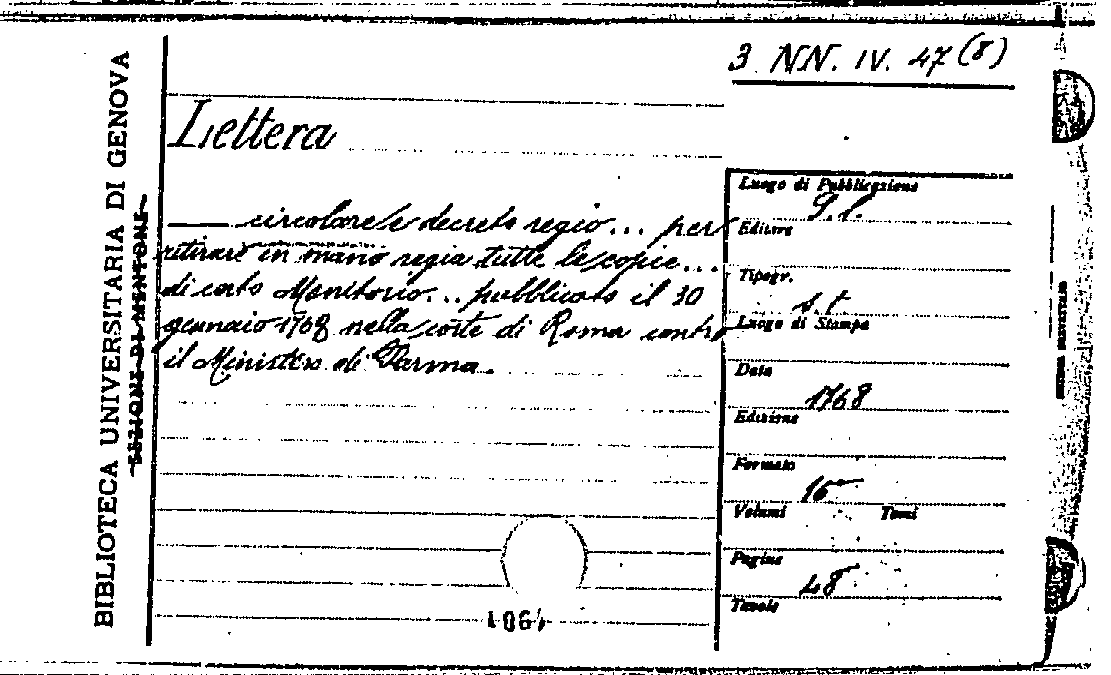 3 NN. IV. 47 (8)
BIBLIOTECA UNIVERSITARIA DI GENOVA
Lettera
circolare e decreto regio... per
ritirare in mano regia tutte le copie...
di certo Monitorio... pubblicato il 30
gennaio 1768 nella corte di Roma contro
il Ministero di Parma.
Luogo di Pubblicazione
S.l.
Editore
Tipogr.
s.t.
Luogo di Stampa
Data
1768
Edizione
Formato
16°
Volumi Tomi
Pagine
48
Tavole